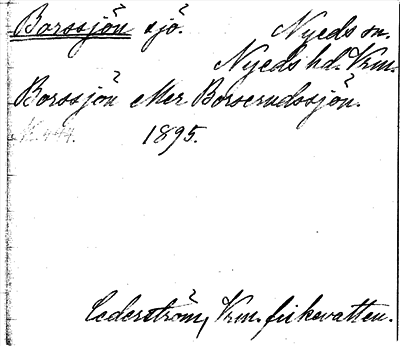 Borssjön sjö. Nyeds sn.
Nyeds hd. Vrm.
Borssjön eller Borserudssjön.
1895.
Cederström, Vrm. fiskevatten.